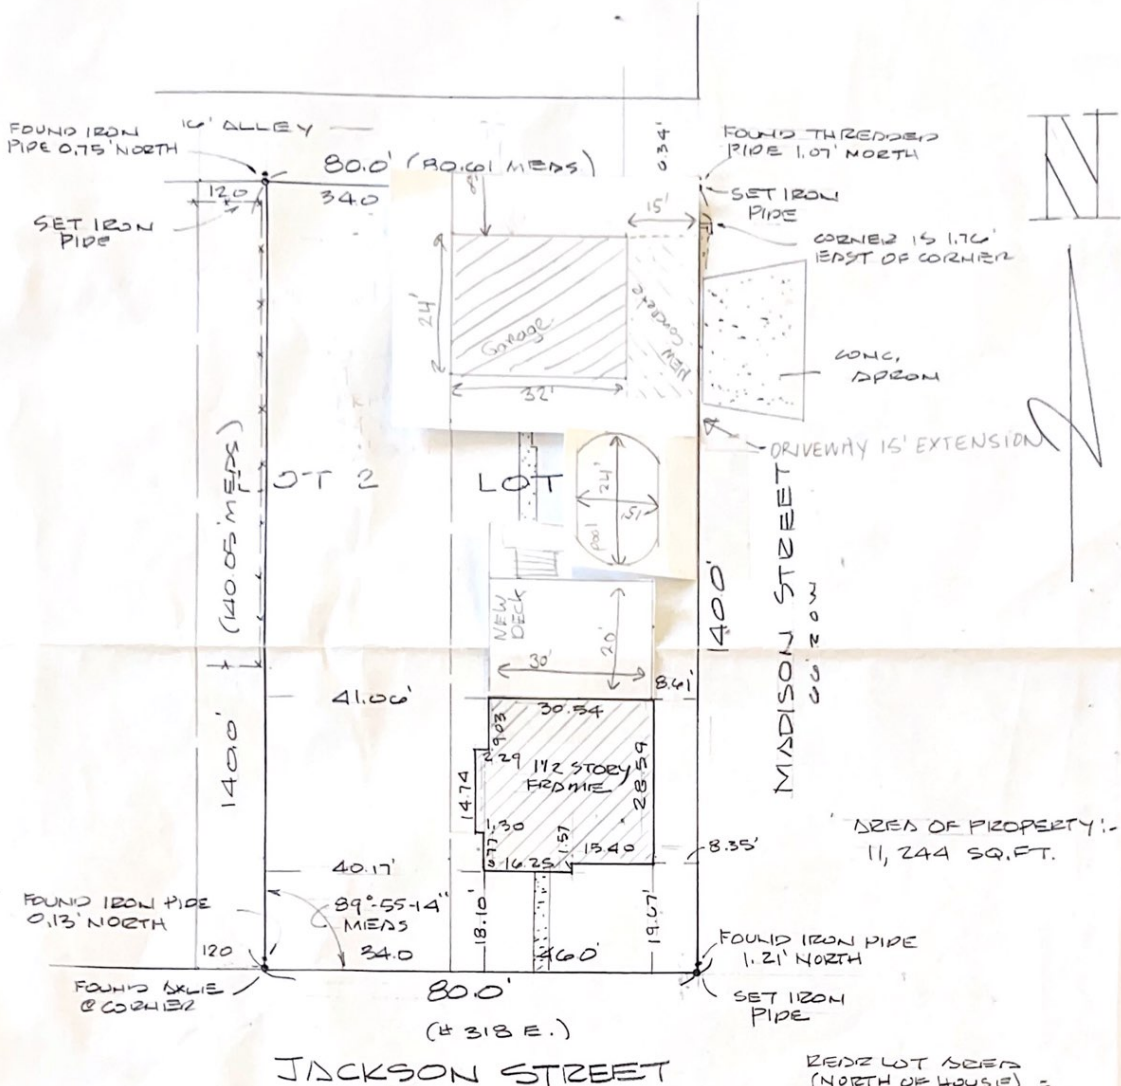 FOUND IRON
PIPE 0.75' NORTH
16' ALLEY
80.0' (80.61 MEAS)
0.34'
FOUND THREDDED
PIPE 1.07' NORTH
N
120
340
SET IRON
PIPE
8'
15'
SET IRON
PIPE
CORNER IS 1.76'
EAST OF CORNER
24'
Garage
NEW
Concrete
32'
CONC.
APRON
DRIVEWAY 15' EXTENSION
OT 2
LOT
24'
15'
Pool
(140.05' MEAS)
140.0'
140.0'
MADISON STREET
66' ROW
NEW
DECK
30'
20'
41.06'
8.61'
30.54
9.03
2.29
1 1/2 STORY
FRAME
28.59
14.74
1.30
6.77
16.25
1.57
15.40
8.35'
40.17'
AREA OF PROPERTY:-
11,244 SQ.FT.
FOUND IRON PIPE
0.13' NORTH
89°-55-14"
MEAS
18.10'
19.67'
120
34.0
46.0'
FOUND IRON PIPE
1.21' NORTH
FOUND AXLE
@ CORNER
80.0'
SET IRON
PIPE
(# 318 E.)
JACKSON STREET
REAR LOT AREA
(NORTH OF HOUSE) -